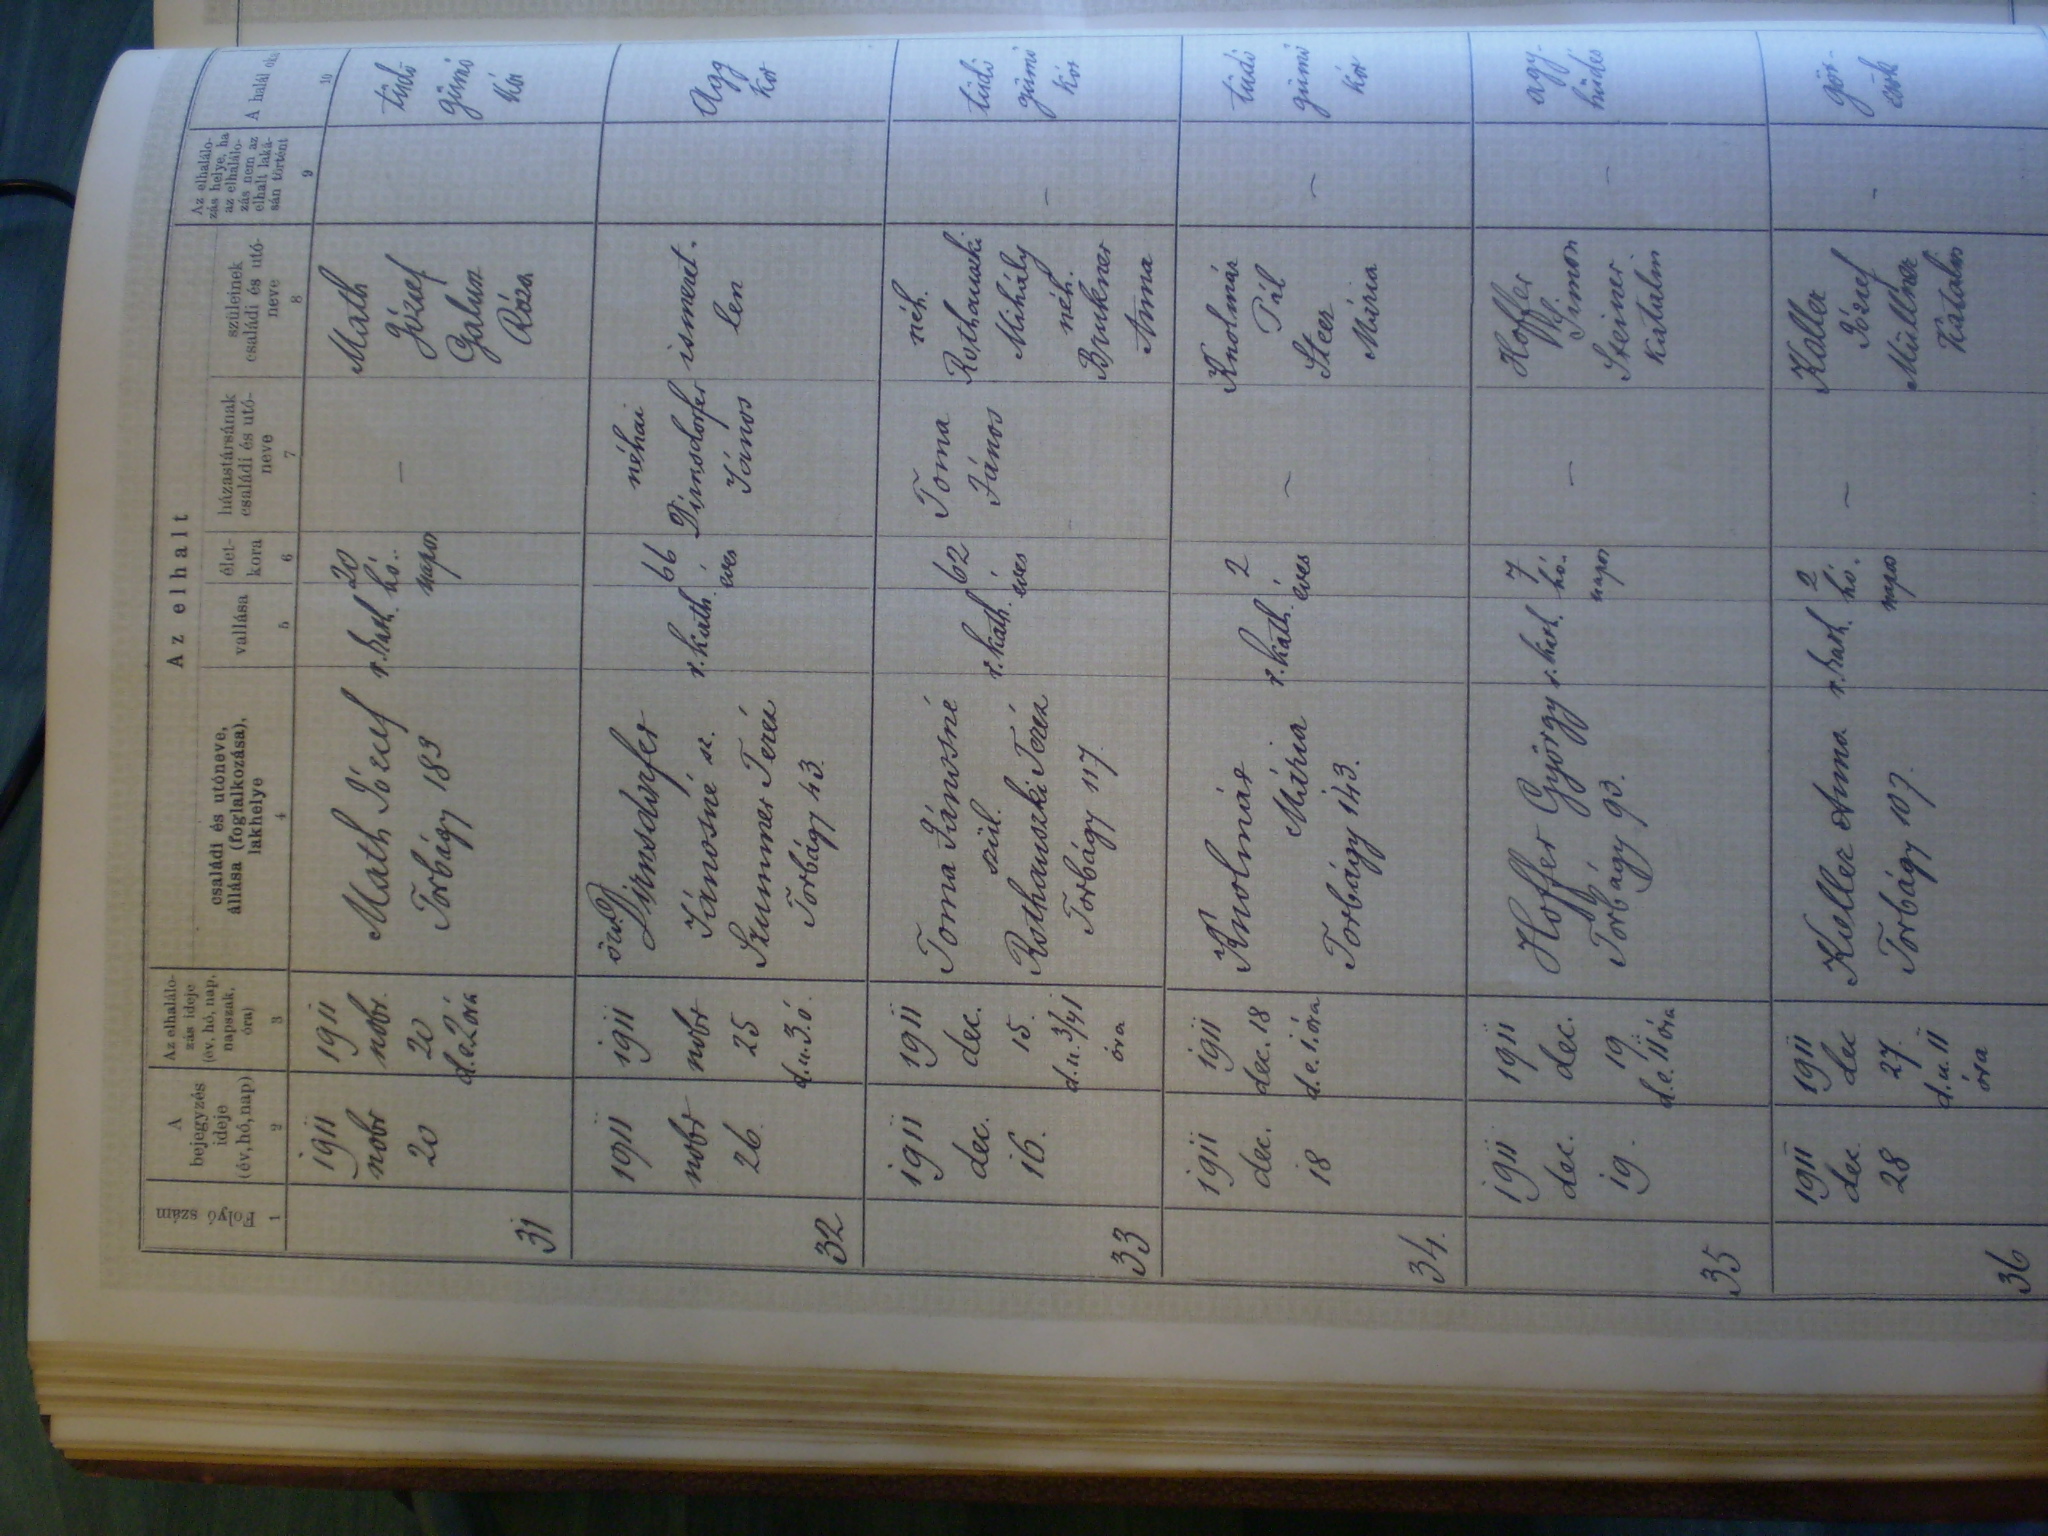 Az elhalt
Folyó szám
A bejegyzés ideje (év, hó, nap)
Az elhalálo-
zás ideje
(év, hó, nap,
napszak,
óra)
családi és utóneve,
állása (foglalkozása),
lakhelye
vallása
élet-
kora
házastársának
családi és utó-
neve
szüleinek
családi és utó-
neve
Az elhalálo-
zás helye, ha
az elhalálo-
zás nem az
elhalt laká-
sán történt
A halál oka
1 2 3 4 5 6 7 8 9 10
31
1911
nobr
20
1911
nobr.
20
d.e. 2 óra
Math József
Torbágy 183
r. kath.
20
hó.
napos
—
Math
József
Galum
Róza
tüdő
gümő
kór
32
1911
nobr
26.
1911
nobr
25
d.u. 3. ó.
özv.
Dirnsdorfer
Jánosné sz.
Szummer Teréz
Torbágy 43.
r. kath.
66
éves
néhai
Dirnsdorfer
János
ismeret.
len
Agg
kor
33
1911
dec.
16.
1911
dec.
15.
d.u. 3/4 1
óra
Toma Jánosné
szül.
Rothauszki Teréz
Torbágy 117.
r. kath.
62
éves
Toma
János
néh.
Rothauszki
Mihály
néh.
Brukner
Anna
—
tüdő
gümő
kór
34.
1911
dec.
18
1911
dec. 18
d.e. 1. óra
Knolmár
Mária
Torbágy 143.
r. kath.
2
éves
—
Knolmár
Pál
Steer
Mária
—
tüdő
gümő
kór
35
1911
dec.
19.
1911
dec.
19
d.e. 11 óra
Hoffer György
Torbágy 93.
r. kath.
7
hó.
napos
—
Hoffer
Simon
Steiner
Katalin
—
agy-
hűdés
36
1911
dec.
28
1911
dec
27.
d.u. 11
óra
Keller Anna
Torbágy 107.
r. kath.
2
hó.
napos
—
Keller
József
Müllner
Katalin
-
gör-
csök